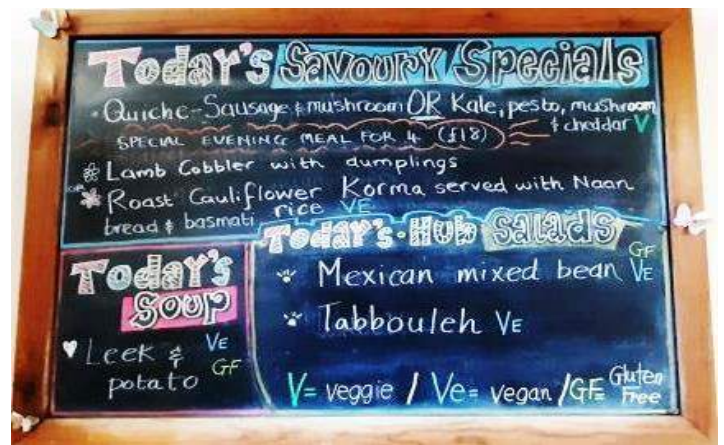 Today's Savoury Specials
• Quiche - Sausage & mushroom OR Kale, pesto, mushroom
& cheddar V
SPECIAL EVENING MEAL FOR 4 (£18)
Lamb Cobbler with dumplings
OR
Roast Cauliflower Korma served with Naan
bread & basmati rice VE
Today's
Soup
Leek &
potato
VE
GF
Today's • Hub Salads
Mexican mixed bean GF VE
Tabbouleh VE
V= veggie / Ve= vegan / GF= Gluten
Free